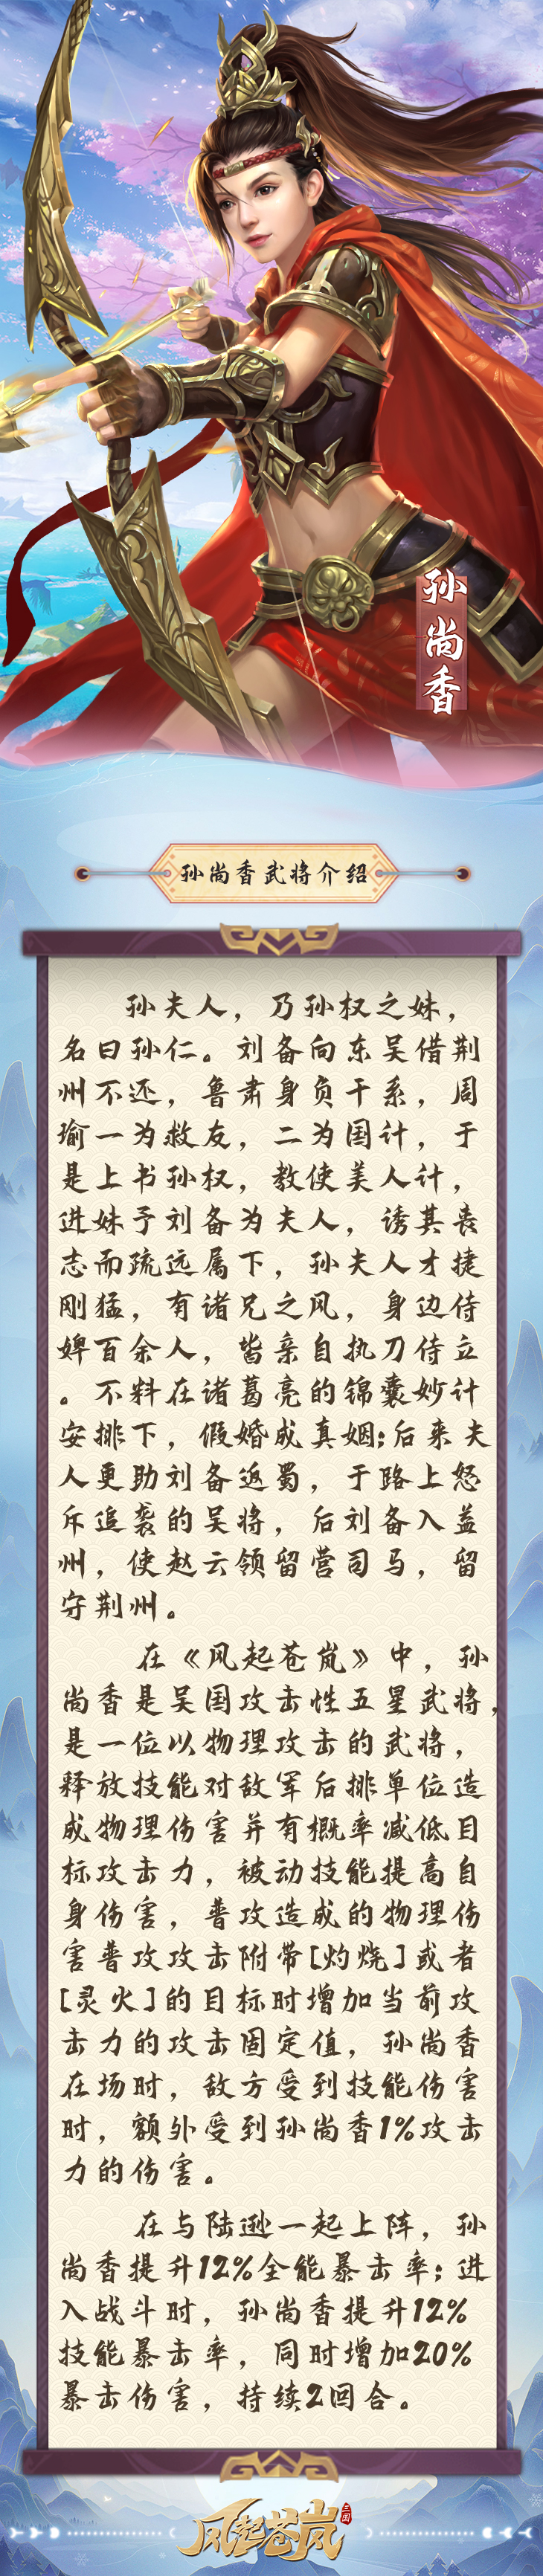 孙尚香
孙尚香武将介绍
孙夫人，乃孙权之妹，
名曰孙仁。刘备向东吴借荆
州不还，鲁肃身负干系，周
瑜一为救友，二为国计，于
是上书孙权，教使美人计，
进妹予刘备为夫人，诱其丧
志而疏远属下，孙夫人才捷
刚猛，有诸兄之风，身边侍
婢百余人，皆亲自执刀侍立
。不料在诸葛亮的锦囊妙计
安排下，假婚成真姻;后来夫
人更助刘备返蜀，于路上怒
斥追袭的吴将，后刘备入益
州，使赵云领留营司马，留
守荆州。
在《风起苍岚》中，孙
尚香是吴国攻击性五星武将，
是一位以物理攻击的武将，
释放技能对敌军后排单位造
成物理伤害并有概率减低目
标攻击力，被动技能提高自
身伤害，普攻造成的物理伤
害普攻攻击附带[灼烧]或者
[灵火]的目标时增加当前攻
击力的攻击固定值，孙尚香
在场时，敌方受到技能伤害
时，额外受到孙尚香1%攻击
力的伤害。
在与陆逊一起上阵，孙
尚香提升12%全能暴击率；进
入战斗时，孙尚香提升12%
技能暴击率，同时增加20%
暴击伤害，持续2回合。
风起苍岚
三国